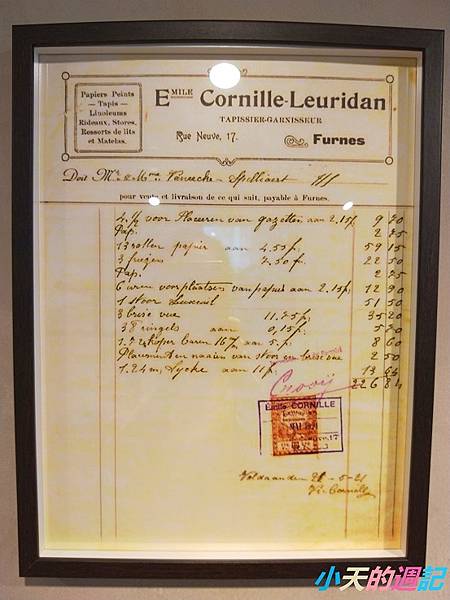 Papiers Peints
— Tapis —
Linoleums
Rideaux, Stores,
Ressorts de lits
et Matelas.
Emile Cornille-Leuridan
TAPISSIER-GARNISSEUR
Rue Neuve, 17.
Furnes
Doit Mr & Mme
pour vente et livraison de ce qui suit, payable à Furnes.
voor Placeren van gazetten aan 2.15f 9 70
Pap. 2 75
13 rollen papier aan 4.55f. 59 15
3 frezen 7.50f. 22 50
Pap. 2 75
6 uren voor plaatsen van papier aan 2.15f. 12 90
1 stoor 51 50
3 brise vue 11.75f. 35 20
38 ringels aan 0,15f. 5 70
koper baren aan 5.f. 8 60
en naaien van stoor en brise vue 2 50
1.24 m. aan 11f. 13 64
226 84
Emile CORNILLE
17
Voldaan den 21-5-21
Cornille
小天的週記